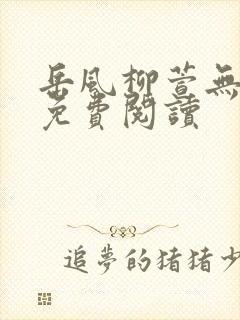 岳風柳萱無
免費閱讀
追夢的豬豬少